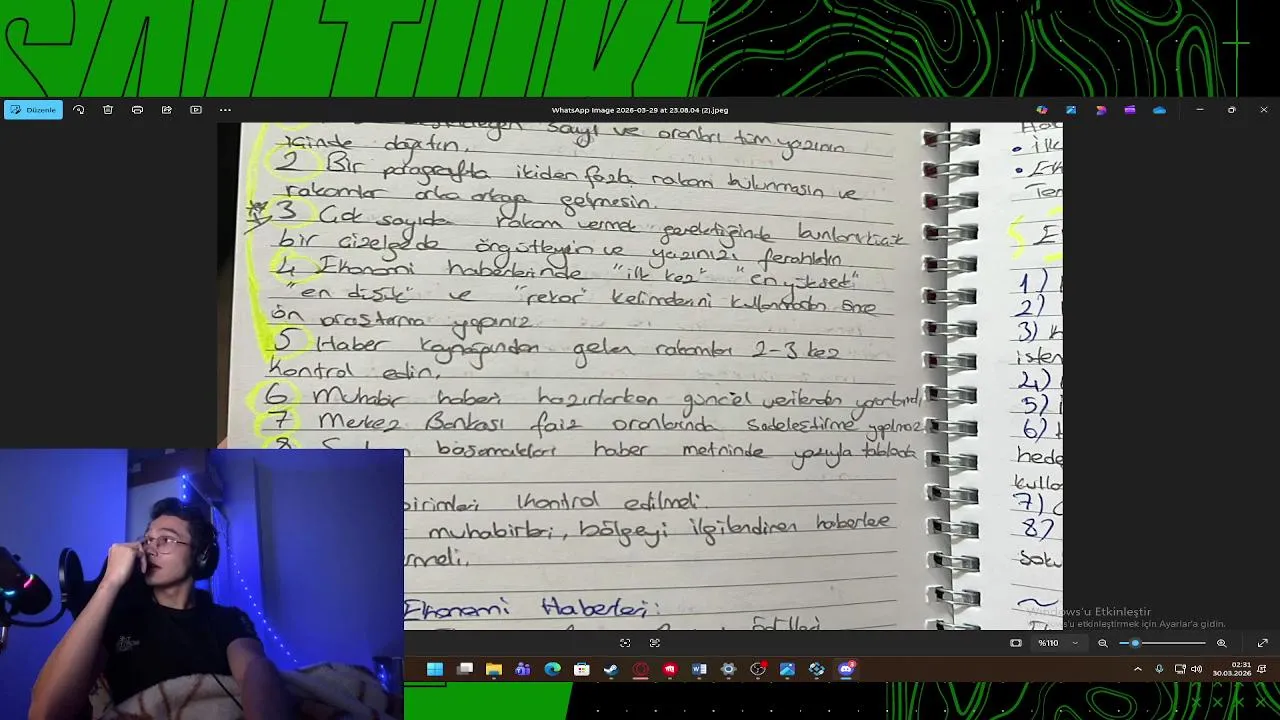 WhatsApp Image 2026-03-29 at 23.08.04 (2).jpeg
Düzenle
sayı ve oranları tüm yazının
içinde dağıtın.
2 Bir paragrafta ikiden fazla rakam bulunmasın ve
rakamlar arka arkaya gelmesin.
3 Çok sayıda rakam vermek gerektiğinde bunları küçük
bir çizelgede örgütleyin ve yazınızı ferahlatın
4 Ekonomi haberlerinde "ilk kez" "en yüksek"
"en düşük" ve "rekor" kelimelerini kullanmadan önce
ön araştırma yapınız
5 Haber kaynağından gelen rakamları 2-3 kez
kontrol edin.
6 Muhabir haberi hazırlarken güncel verilerden
7 Merkez Bankası faiz oranlarında sadeleştirme yapılmaz
8 basamakları haber metninde yazıyla tabloda
birimleri kontrol edilmeli.
muhabirleri, bölgeyi ilgilendiren haberlere
Ekonomi Haberleri:
1)
2)
3)
4)
5)
6)
7)
8)
Windows'u Etkinleştir
Windows'u etkinleştirmek için Ayarlar'a gidin.
%110
02:31
30.03.2026